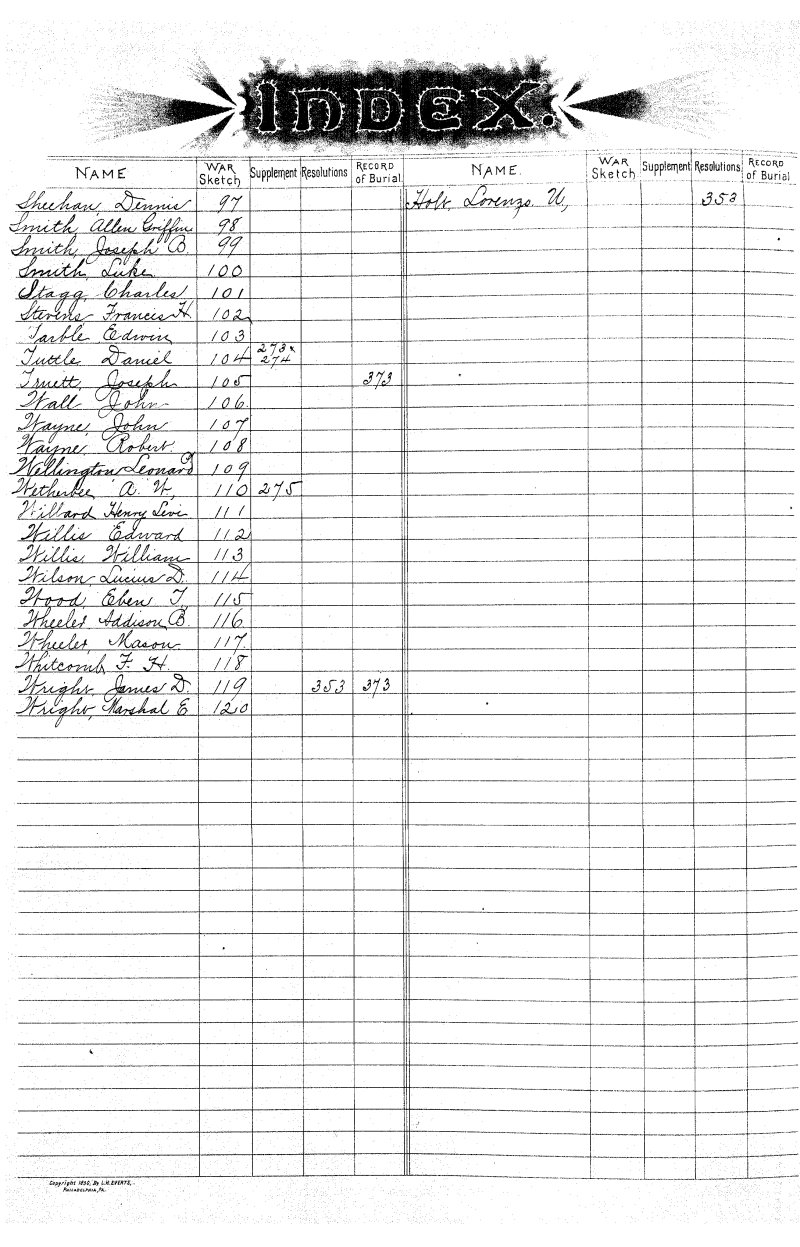 INDEX.
NAME WAR Sketch Supplement Resolutions RECORD of Burial NAME. WAR Sketch Supplement Resolutions. RECORD of Burial
Sheehan, Dennis 97 Holt, Lorenzo U, 353
Smith, Allen Griffin 98
Smith, Joseph B. 99
Smith, Luke 100
Stagg, Charles 101
Stevens, Francis H. 102
Tarble Edwin 103
Tuttle, Daniel 104 273 x 274
Truett, Joseph 105 373
Wall John 106
Wayne, John 107
Wayne, Robert. 108
Wellington Leonard 109
Wetherbee, A. W, 110 275
Willard Henry Levi 111
Willis Edward 112
Willis, William 113
Wilson, Lucius D. 114
Wood, Eben T, 115
Wheeler, Addison B. 116
Wheeler, Mason 117
Whitcomb, F. H. 118
Wright, James D. 119 353 373
Wright, Marshal E 120
Copyright 1890, By L.H. EVERTS,
PHILADELPHIA, PA.